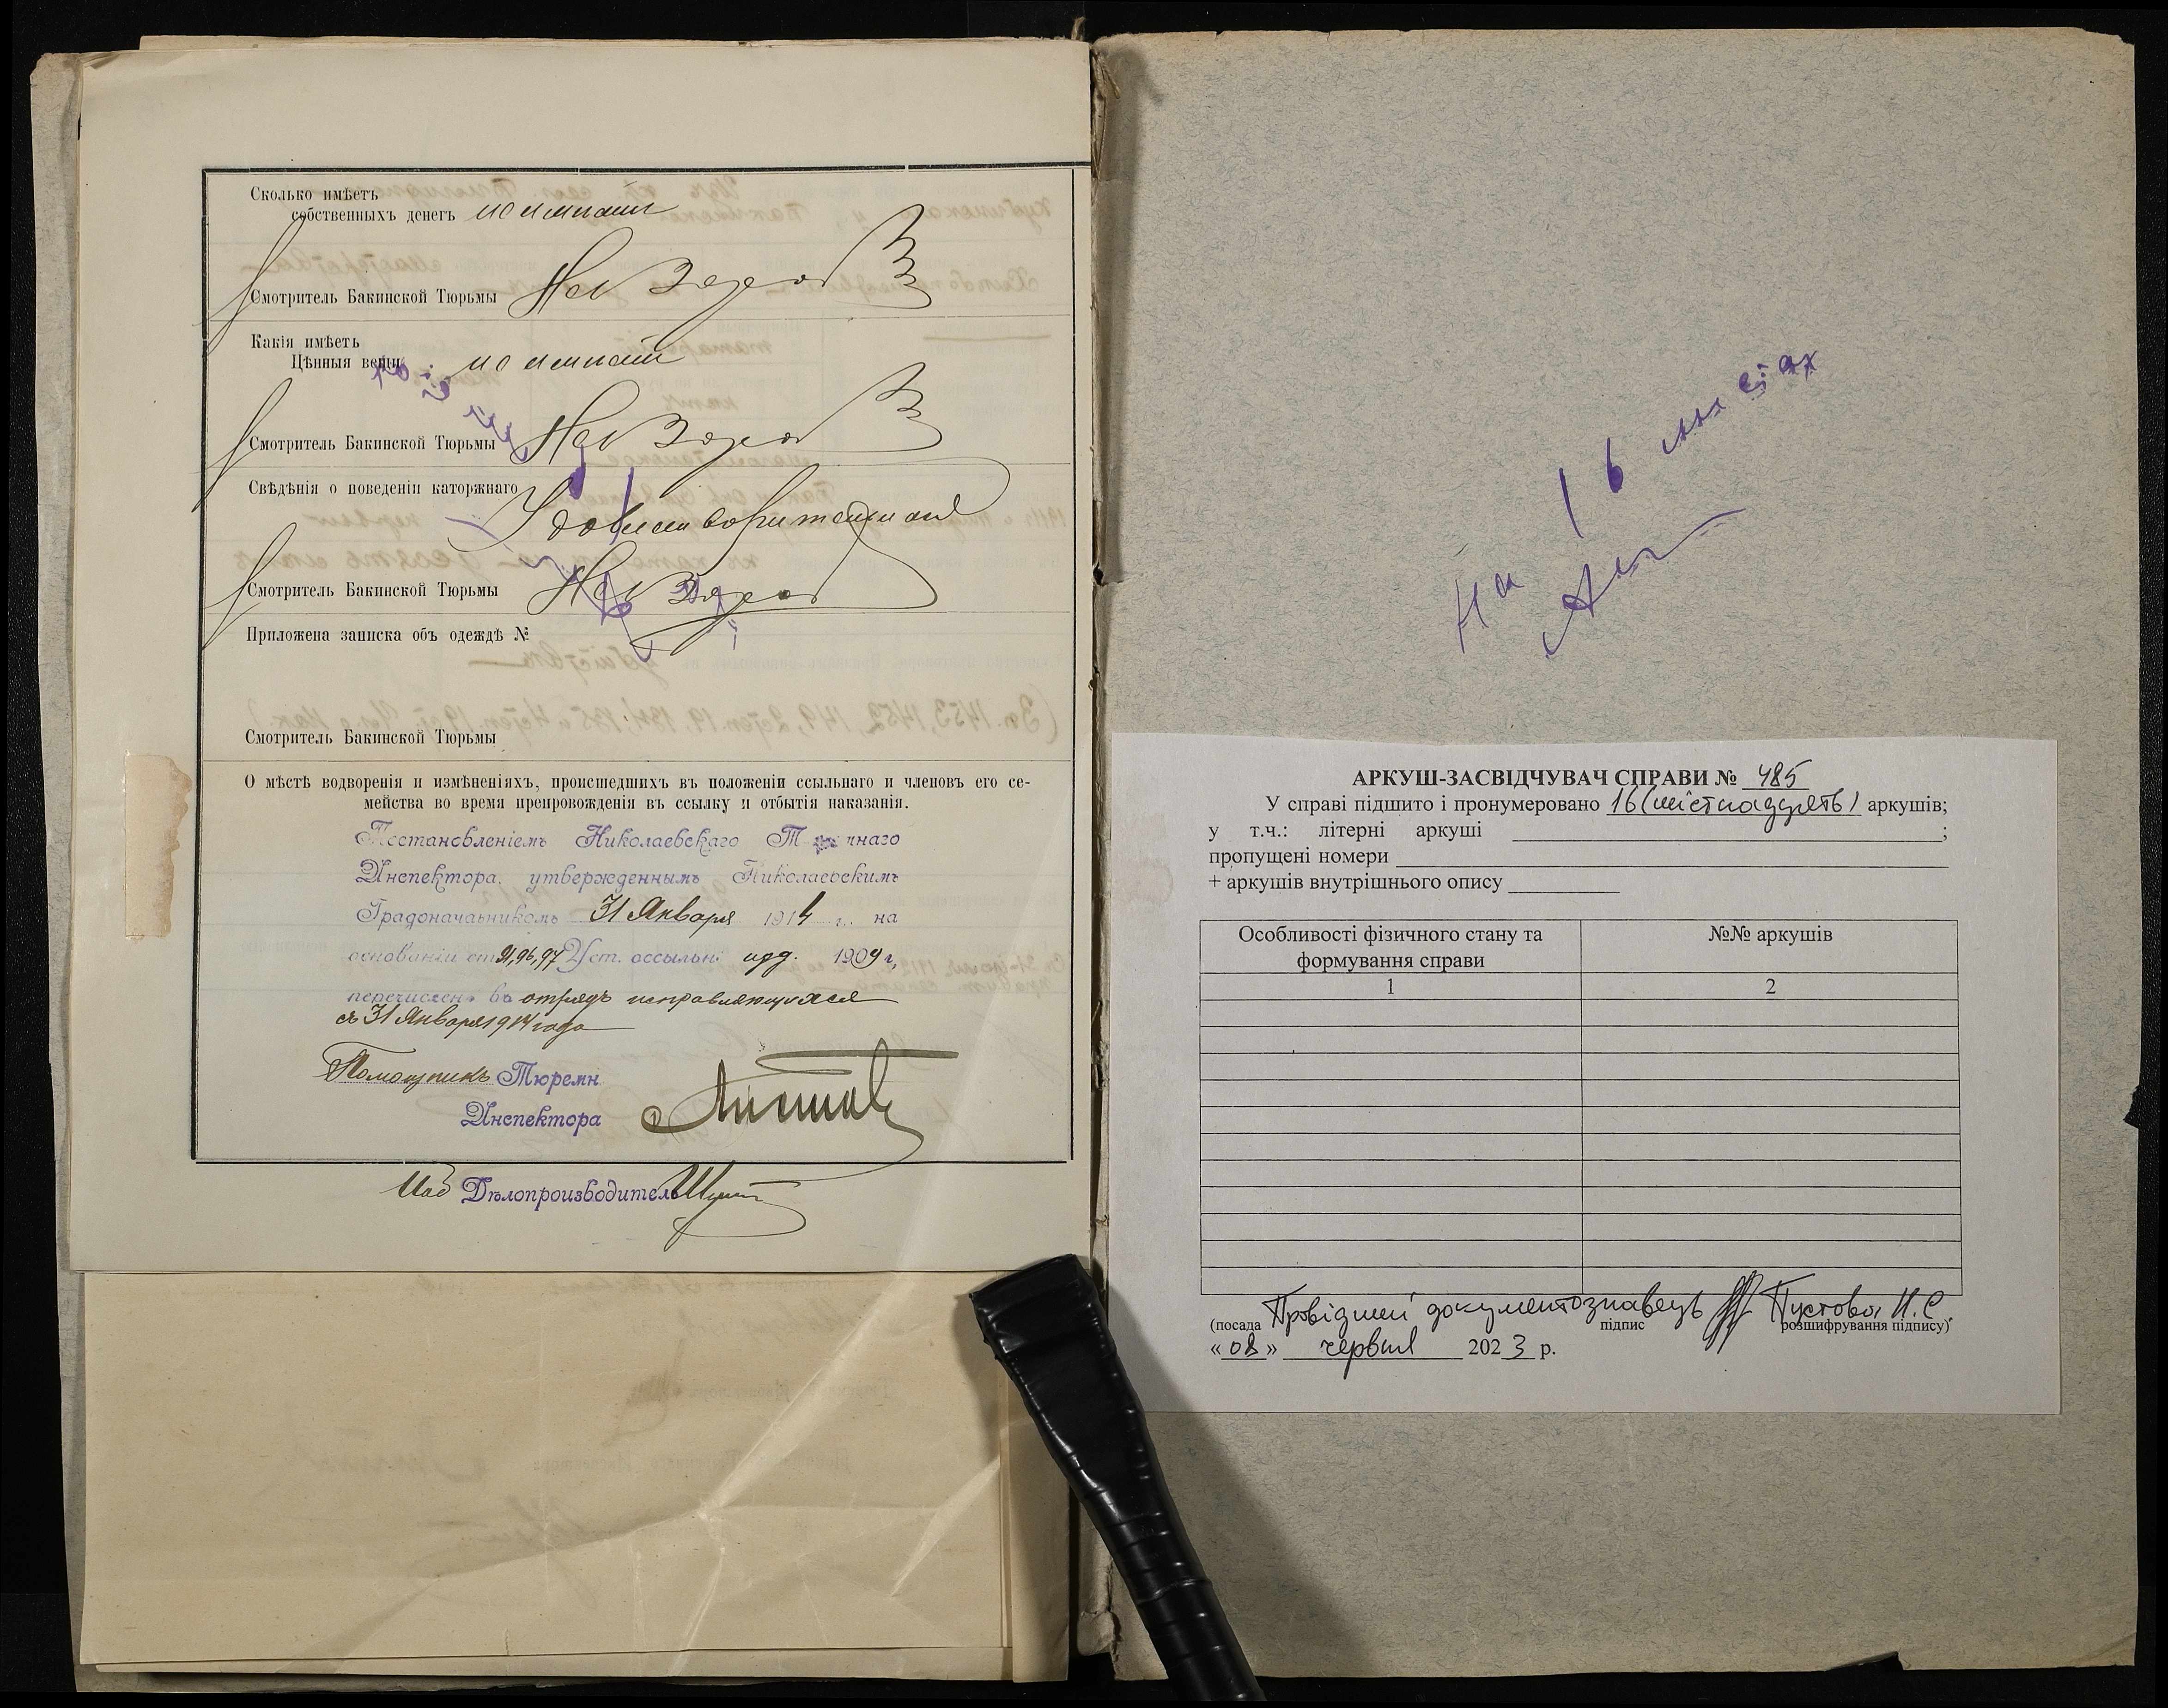 Сколько имѣетъ
собственныхъ денегъ не имѣетъ
Смотритель Бакинской Тюрьмы
Какія имѣетъ
Цѣнныя вещи не имѣетъ
Смотритель Бакинской Тюрьмы
Свѣдѣнія о поведеніи каторжнаго
Удовлетворительное
Смотритель Бакинской Тюрьмы
Приложена записка объ одеждѣ №
Смотритель Бакинской Тюрьмы
О мѣстѣ водворенія и измѣненіяхъ, происшедшихъ въ положеніи ссыльнаго и членовъ его се-
мейства во время препровожденія въ ссылку и отбытія наказанія.
Постановленіемъ Николаевскаго
Инспектора, утвержденнымъ Николаевскимъ
Градоначальникомъ 31 Января 1914 г. на
основаніи ст 91,96,97 Уст. о ссыльн. изд. 1909 г,
перечисленъ въ отрядъ исправляющихся
съ 31 Января 1914 года
Помощникъ Тюремн.
Инспектора
Дѣлопроизводитель
На 16 листах
АРКУШ-ЗАСВІДЧУВАЧ СПРАВИ № 485
У справі підшито і пронумеровано 16 (шістнадцять) аркушів;
у т.ч.: літерні аркуші ;
пропущені номери
+ аркушів внутрішнього опису
Особливості фізичного стану та
формування справи
№№ аркушів
1 2
Провідний документознавець Пустова Н.С.
(посада підпис розшифрування підпису)
« 08 » червня 2023 р.